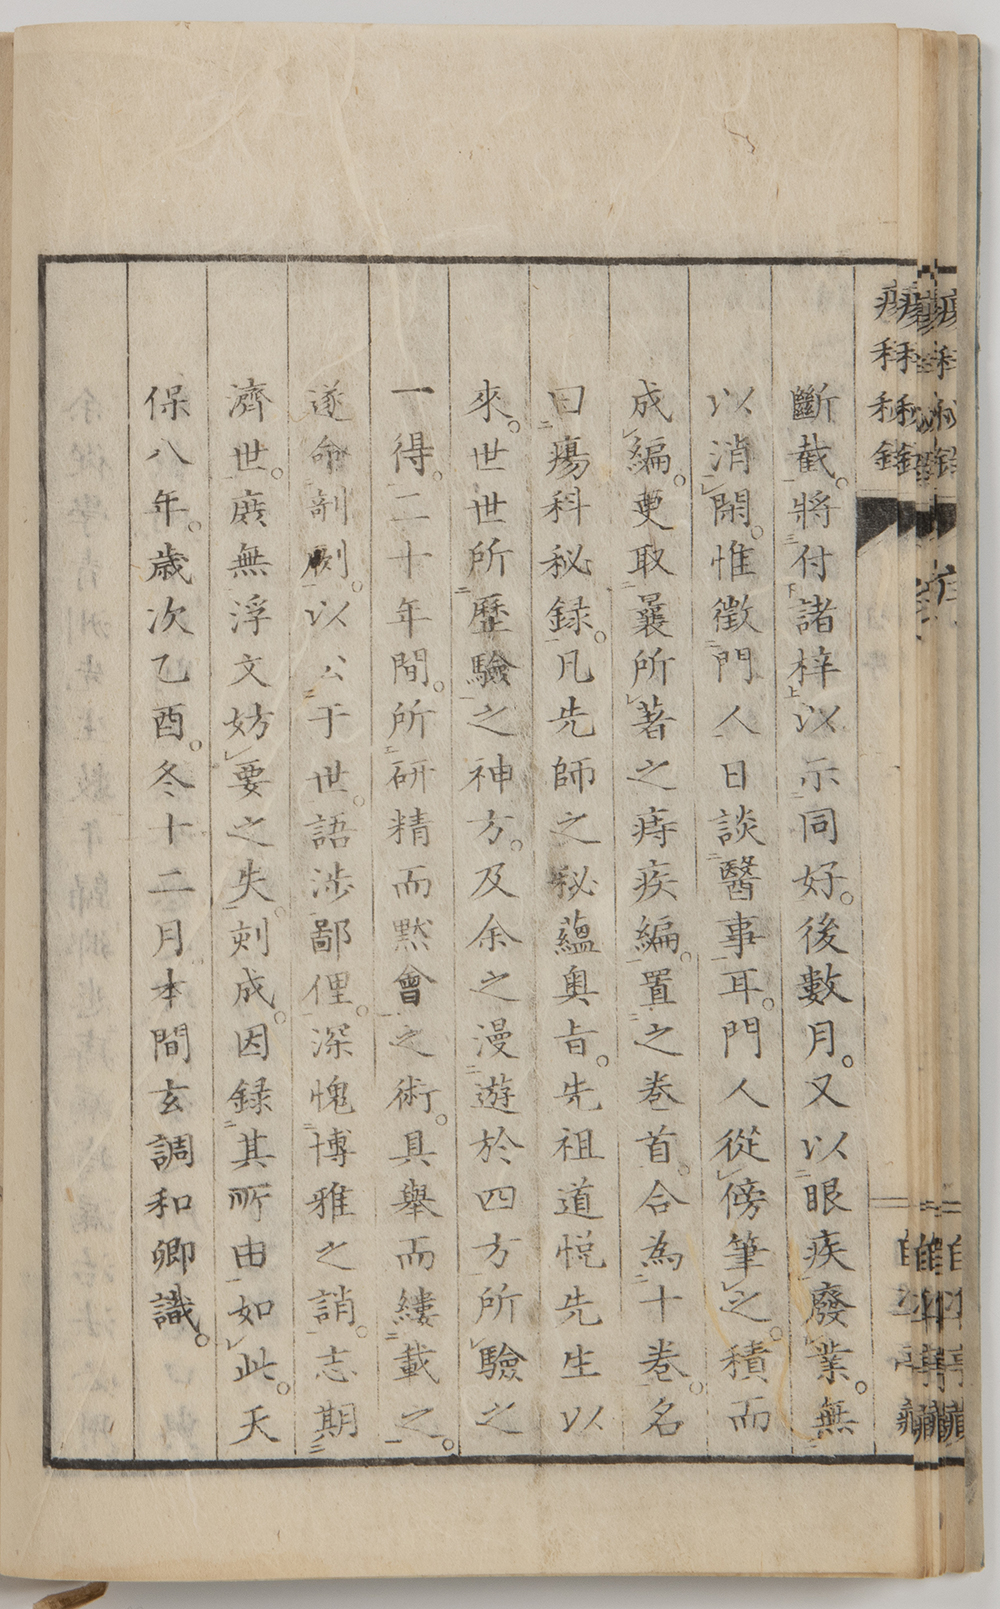 瘍科秘録
自準亭藏
斷截。將付諸梓以示同好。後數月。又以眼疾廢業。無
以消閑。惟徴門人日談醫事耳。門人從傍筆之。積而
成編。更取曩所著之痔疾編。置之卷首。合為十卷。名
曰瘍科秘録。凡先師之秘蘊奥旨。先祖道悦先生以
來。世世所歷驗之神方。及余之漫遊於四方所驗之
一得。二十年間。所研精而黙會之術。具舉而縷載之。
遂命剞劂。以公于世。語涉鄙俚。深愧博雅之誚。志期
濟世。庶無浮文妨要之失。刻成。因録其所由如此。天
保八年。歳次乙酉。冬十二月本間玄調和卿識。